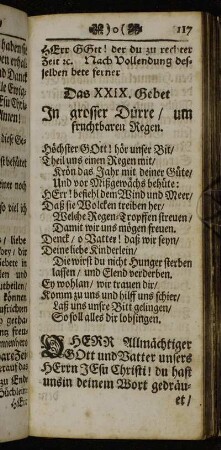 )o(
117
HErr GOtt! der du zu rechter
Zeit ꝛc. Nach Vollendung des-
selben bete ferner
Das XXIX. Gebet
In grosser Dürre / um
fruchtbaren Regen.
Höchster GOtt! hör unser Bit/
Theil uns einen Regen mit/
Krön das Jahr mit deiner Güte/
Und vor Mißgewächs behüte:
HErr! befiehl dem Wind und Meer/
Daß sie Wolcken treiben her/
Welche Regen-Tropffen streuen/
Damit wir uns mögen freuen.
Denck/ o Vatter! daß wir seyn/
Deine liebe Kinderlein/
Die wirst du nicht Hunger sterben
lassen / und Elend verderben.
Ey wohlan/ wir trauen dir/
Komm zu uns und hilff uns schier/
Laß uns unsre Bitt gelingen/
So soll alles dir lobsingen.
O HERR Allmächtiger
GOtt und Vatter unsers
HErrn JEsu Christi! du hast
uns in deinem Wort gedräu-
et/